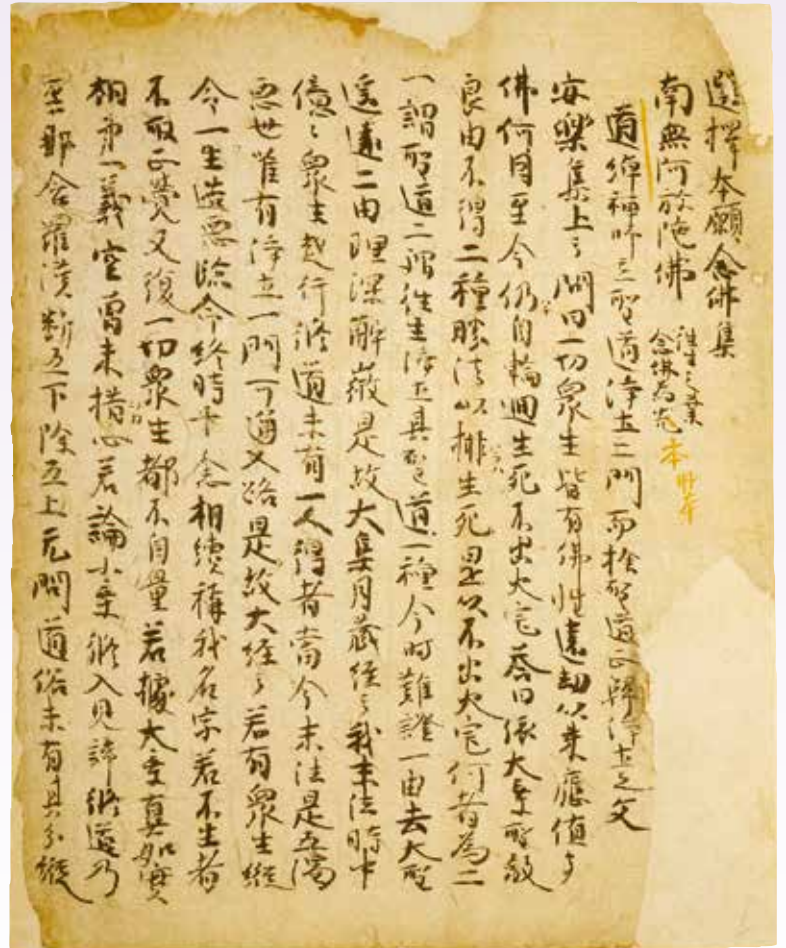 選擇本願念佛集
南無阿弥陀佛
往生之業
念佛為先
本
道綽禅師立聖道浄土二門而捨聖道正歸浄土之文
安樂集上云問曰一切衆生皆有佛性遠劫以来應値多
佛何因至今仍自輪廻生死不出火宅荅曰依大乗聖教
良由不得二種勝法以排生死是以不出火宅何者為二
一謂聖道二謂往生浄土其聖道一種今時難證一由去大聖
遥遠二由理深解微是故大集月蔵経云我末法時中
億々衆生起行修道未有一人得者當今末法是五濁
悪世唯有浄土一門可通入路是故大経云若有衆生縦
令一生造悪臨命終時十念相續稱我名字若不生者
不取正覺又復一切衆生都不自量若據大乗真如實
相第一義空曽未措心若論小乗修入見諦修道乃
至那含羅漢断五下除五上无問道俗未有其分縦